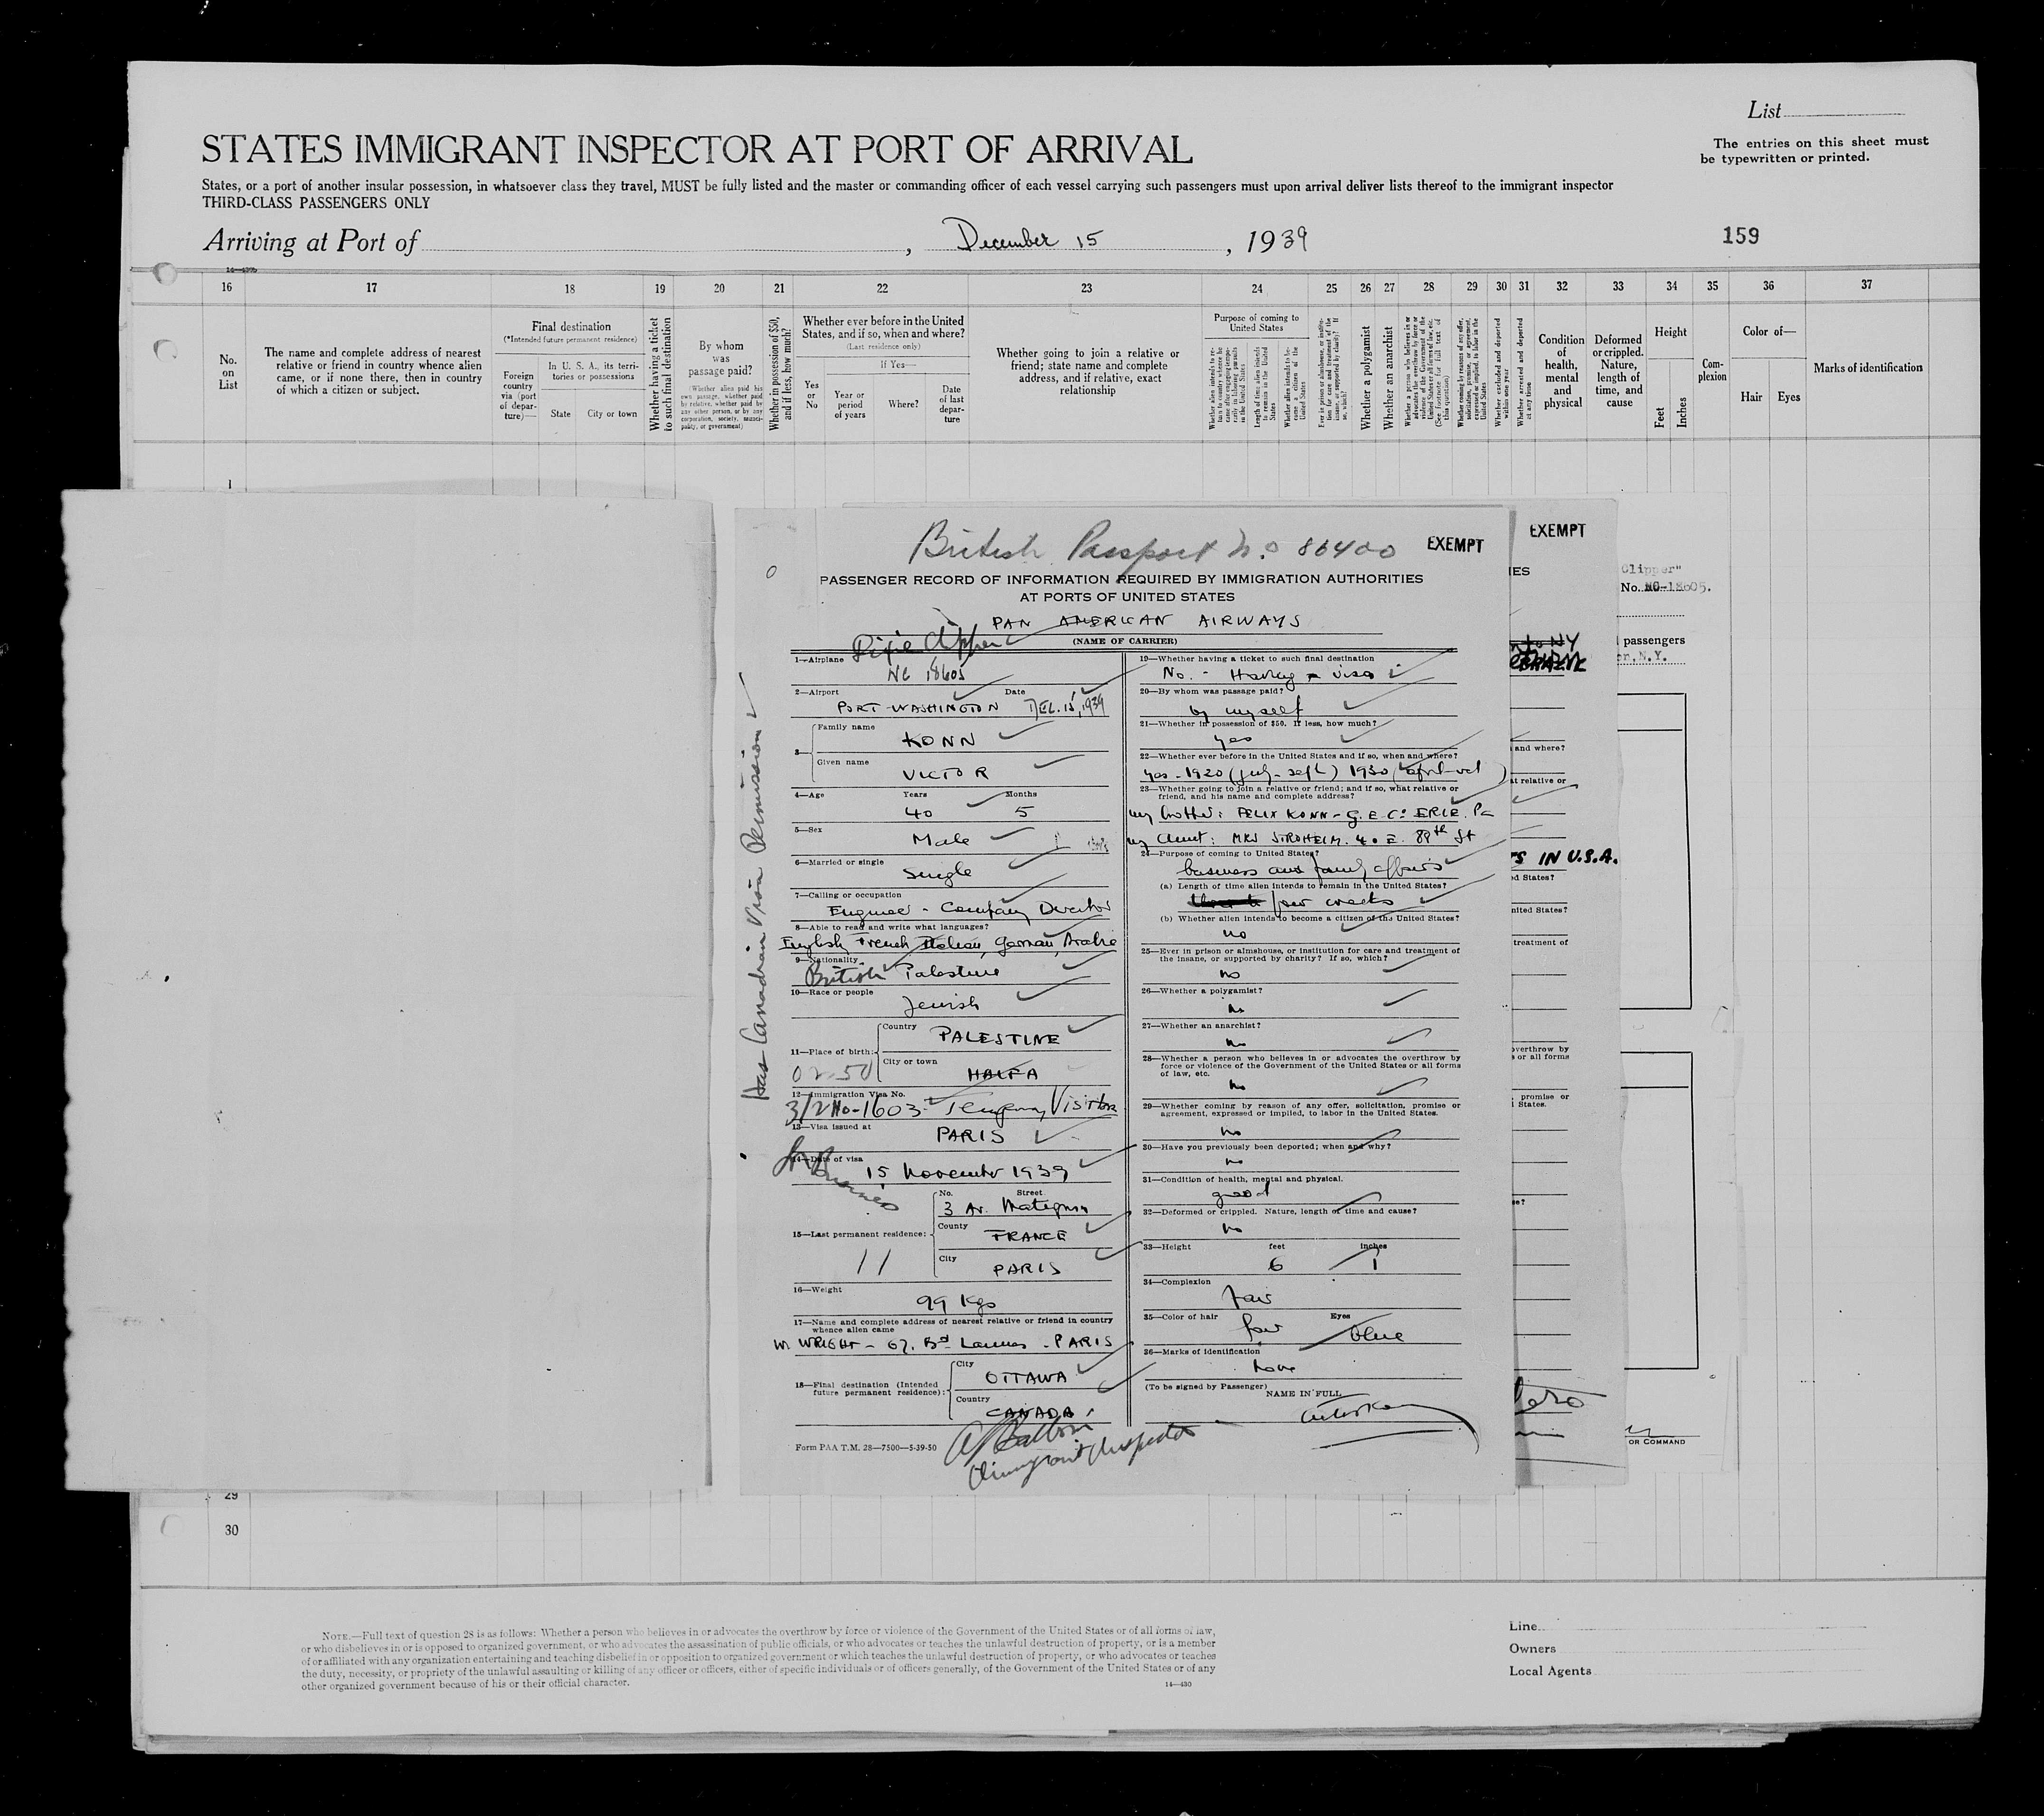 List
STATES IMMIGRANT INSPECTOR AT PORT OF ARRIVAL
The entries on this sheet must
be typewritten or printed.
States, or a port of another insular possession, in whatsoever class they travel, MUST be fully listed and the master or commanding officer of each vessel carrying such passengers must upon arrival deliver lists thereof to the immigrant inspector
THIRD-CLASS PASSENGERS ONLY
Arriving at Port of , December 15 , 1939
159
16 17 18 19 20 21 22 23 24 25 26 27 28 29 30 31 32 33 34 35 36 37
No. on List
The name and complete address of nearest
relative or friend in country whence alien
came, or if none there, then in country
of which a citizen or subject.
Final destination
(*Intended future permanent residence)
Foreign country via (port of departure)—
In U. S. A., its territories or possessions
State
City or town
Whether having a ticket to such final destination
By whom was passage paid?
(Whether alien paid his own passage, whether paid by relative, whether paid by any other person, or by any corporation, society, municipality, or government)
Whether in possession of $50, and if less, how much?
Whether ever before in the United
States, and if so, when and where?
(Last residence only)
Yes or No
If Yes—
Year or period of years
Where?
Date of last departure
Whether going to join a relative or
friend; state name and complete
address, and if relative, exact
relationship
Purpose of coming to United States
Whether a polygamist
Whether an anarchist
Whether arrested and deported at any time
Condition of health, mental and physical
Deformed or crippled. Nature, length of time, and cause
Height
Feet
Inches
Complexion
Color of—
Hair
Eyes
Marks of identification
1
British Passport No 86400
EXEMPT
EXEMPT
PASSENGER RECORD OF INFORMATION REQUIRED BY IMMIGRATION AUTHORITIES
AT PORTS OF UNITED STATES
PAN AMERICAN AIRWAYS
(NAME OF CARRIER)
Has Canadian Visa Permission
1—Airplane Dixie Clipper
NC 18605
2—Airport Date
PORT WASHINGTON DEC. 15, 1939
3— Family name
KONN
Given name
VICTOR
4—Age Years Months
40 5
5—Sex
Male
6—Married or single
Single
7—Calling or occupation
Engineer - Company Director
8—Able to read and write what languages?
English French Italian, German, Arabic
9—Nationality
British Palestine
10—Race or people
Jewish
11—Place of birth:
Country PALESTINE
City or town
HAIFA
12—Immigration Visa No.
3/2 No-1603 Temporary Visitor
13—Visa issued at
PARIS
14—Date of visa
15 November 1939
15—Last permanent residence:
No. Street
3 Av. Matignon
County
FRANCE
City
PARIS
11
16—Weight
99 Kgs
17—Name and complete address of nearest relative or friend in country
whence alien came
W. WRIGHT - 67. Bd Lannes - PARIS
18—Final destination (Intended
future permanent residence):
City
OTTAWA
Country
CANADA
Form PAA T.M. 28—7500—5-39-50
Immigrant Inspector
19—Whether having a ticket to such final destination
No. - Having a visa
20—By whom was passage paid?
by myself
21—Whether in possession of $50. If less, how much?
yes
22—Whether ever before in the United States and if so, when and where?
yes - 1920 (july - sept) 1930 (april-oct)
23—Whether going to join a relative or friend; and if so, what relative or
friend, and his name and complete address?
my brother: FELIX KONN - G.E. Co ERIE. Pa
my Aunt: MRS STROHEIM. 40 E. 89th St
24—Purpose of coming to United States?
business and family affairs
(a) Length of time alien intends to remain in the United States?
four weeks
(b) Whether alien intends to become a citizen of the United States?
no
25—Ever in prison or almshouse, or institution for care and treatment of
the insane, or supported by charity? If so, which?
no
26—Whether a polygamist?
no
27—Whether an anarchist?
no
28—Whether a person who believes in or advocates the overthrow by
force or violence of the Government of the United States or all forms
of law, etc.
no
29—Whether coming by reason of any offer, solicitation, promise or
agreement, expressed or implied, to labor in the United States.
no
30—Have you previously been deported; when and why?
no
31—Condition of health, mental and physical.
good
32—Deformed or crippled. Nature, length of time and cause?
no
33—Height feet inches
6 1
34—Complexion
fair
35—Color of hair Eyes
fair blue
36—Marks of identification
none
(To be signed by Passenger)
NAME IN FULL
IES
Clipper"
No. NC-18605.
passengers
N.Y.
and where?
at relative or
IN U.S.A.
ed States?
nited States?
treatment of
overthrow by
s or all forms
promise or
States.
se?
OR COMMAND
29
30
NOTE.—Full text of question 28 is as follows: Whether a person who believes in or advocates the overthrow by force or violence of the Government of the United States or of all forms of law,
or who disbelieves in or is opposed to organized government, or who advocates the assassination of public officials, or who advocates or teaches the unlawful destruction of property, or is a member
of or affiliated with any organization entertaining and teaching disbelief in or opposition to organized government or which teaches the unlawful destruction of property, or who advocates or teaches
the duty, necessity, or propriety of the unlawful assaulting or killing of any officer or officers, either of specific individuals or of officers generally, of the Government of the United States or of any
other organized government because of his or their official character.
14—430
Line
Owners
Local Agents